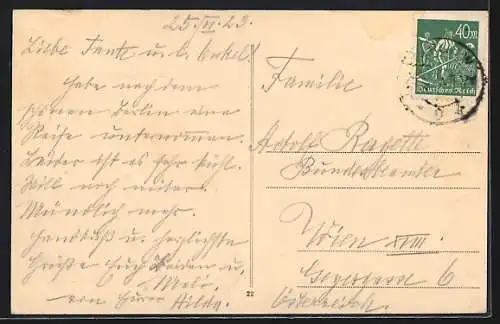 25.VI.23.
Liebe Tante u. l. Onkel!
Habe nach dem
schönen Berlin eine
Reise unternommen.
Leider ist es sehr kühl.
Will noch weiter.
Mündlich mehr.
Handkuß u. herzlichste
Grüße Euch Beiden u.
Meli.
von Eurer Hilda.
22
40 M
Deutsches Reich
Familie
Adolf
Bundesbeamter
Wien XVIII
6
Österreich.